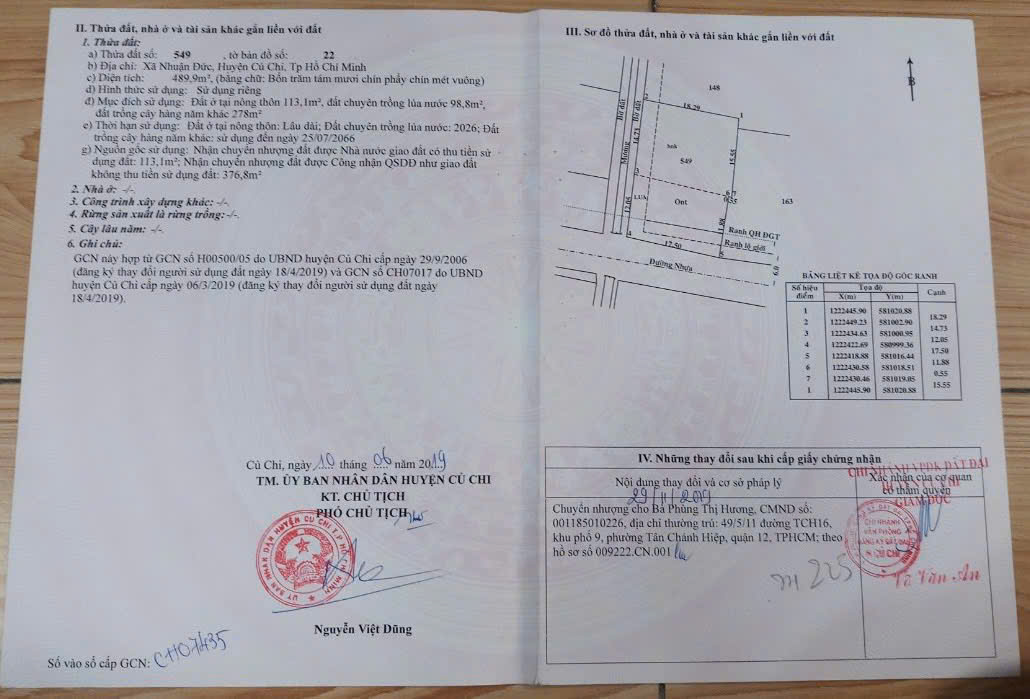 II. Thửa đất, nhà ở và tài sản khác gắn liền với đất
1. Thửa đất:
a) Thửa đất số: 549 , tờ bản đồ số: 22
b) Địa chỉ: Xã Nhuận Đức, Huyện Củ Chi, Tp Hồ Chí Minh
c) Diện tích: 489,9m², (bằng chữ: Bốn trăm tám mươi chín phẩy chín mét vuông)
d) Hình thức sử dụng: Sử dụng riêng
đ) Mục đích sử dụng: Đất ở tại nông thôn 113,1m², đất chuyên trồng lúa nước 98,8m²,
đất trồng cây hàng năm khác 278m²
e) Thời hạn sử dụng: Đất ở tại nông thôn: Lâu dài; Đất chuyên trồng lúa nước: 2026; Đất
trồng cây hàng năm khác: sử dụng đến ngày 25/07/2066
g) Nguồn gốc sử dụng: Nhận chuyển nhượng đất được Nhà nước giao đất có thu tiền sử
dụng đất: 113,1m²; Nhận chuyển nhượng đất được Công nhận QSDĐ như giao đất
không thu tiền sử dụng đất: 376,8m²
2. Nhà ở: -/-.
3. Công trình xây dựng khác: -/-.
4. Rừng sản xuất là rừng trồng:-/-.
5. Cây lâu năm: -/-.
6. Ghi chú:
GCN này hợp từ GCN số H00500/05 do UBND huyện Củ Chi cấp ngày 29/9/2006
(đăng ký thay đổi người sử dụng đất ngày 18/4/2019) và GCN số CH07017 do UBND
huyện Củ Chi cấp ngày 06/3/2019 (đăng ký thay đổi người sử dụng đất ngày
18/4/2019).
Củ Chi, ngày 10 tháng 06 năm 2019
TM. ỦY BAN NHÂN DÂN HUYỆN CỦ CHI
KT. CHỦ TỊCH
PHÓ CHỦ TỊCH
Nguyễn Việt Dũng
Số vào sổ cấp GCN: CH07435
III. Sơ đồ thửa đất, nhà ở và tài sản khác gắn liền với đất
B
148
2
18.29
1
Bờ đất
Bờ đất
14.73
Mương
hnk
549
15.55
3
6
7
0.55
163
LUA
Ont
12.05
11.88
Ranh QH ĐGT
4
17.50
Ranh lộ giới
5
Đường Nhựa
6.0
BẢNG LIỆT KÊ TỌA ĐỘ GÓC RANH
Số hiệu điểm Tọa độ Cạnh
X(m) Y(m)
1 1222445.90 581020.88
18.29
2 1222449.23 581002.90
14.73
3 1222434.63 581000.95
12.05
4 1222422.69 580999.36
17.50
5 1222418.88 581016.44
11.88
6 1222430.58 581018.51
0.55
7 1222430.46 581019.05
15.55
1 1222445.90 581020.88
IV. Những thay đổi sau khi cấp giấy chứng nhận
Nội dung thay đổi và cơ sở pháp lý
Xác nhận của cơ quan
có thẩm quyền
CHI NHÁNH VPĐK ĐẤT ĐAI
HUYỆN CỦ CHI
GIÁM ĐỐC
29/11/2019
Chuyển nhượng cho Bà Phùng Thị Hương, CMND số:
001185010226, địa chỉ thường trú: 49/5/11 đường TCH16,
khu phố 9, phường Tân Chánh Hiệp, quận 12, TPHCM; theo
hồ sơ số 009222.CN.001
CHI NHÁNH
VĂN PHÒNG
ĐĂNG KÝ ĐẤT ĐAI
H.CỦ CHI
Võ Văn An
225